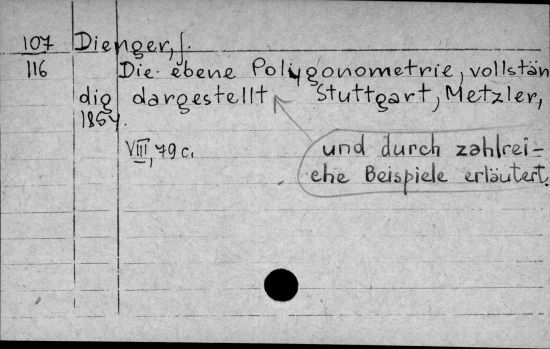 107 Dienger, J.
116 Die ebene Polygonometrie, vollstän
dig dargestellt Stuttgart, Metzler,
1854.
VIII, 79 c.
und durch zahlrei-
che Beispiele erläutert.